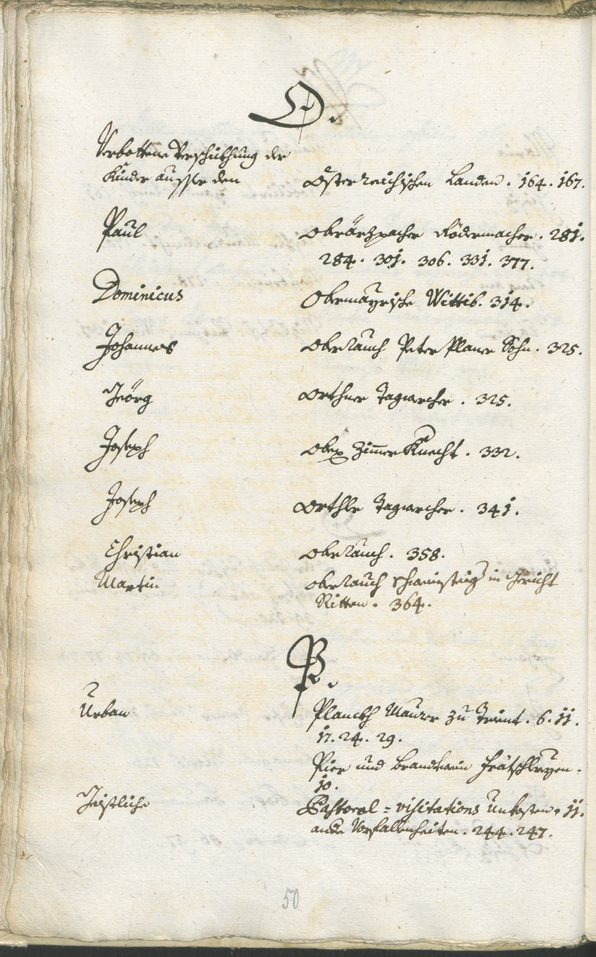 O.
Verbottene Verschickhung der
Kinder ausser den Österreichischen Landen. 164. 167.
Paul Rödermacher. 281.
284. 301. 306. 331. 377.
Dominicus Obermayrische Wittib. 314.
Johannes Oberrauch Peter Planer Sohn. 325.
Jeörg Orthner Tagwercher. 325.
Joseph Zimmer Knecht. 332.
Joseph Orthle Tagwercher. 341.
Christian Oberrauch. 358.
Martin Oberrauch in Gericht
Ritten. 364.
P.
Urban Planckh Maurer zu 6. 11.
17. 24. 29.
Pier und Brandwein
10.
Geistliche Pastoral-visitations Unkosten. 11.
andere Vorfallenheiten. 244. 247.
50